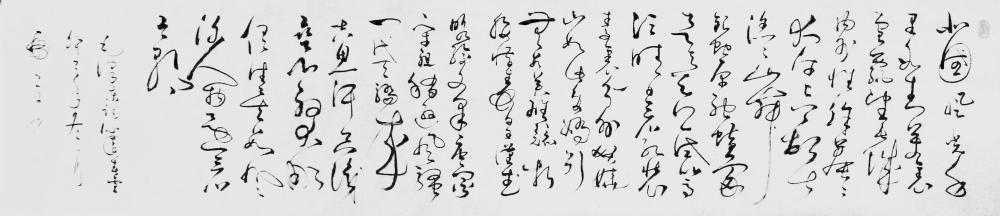 北国风光千
里冰封万里
雪飘望长城
内外惟余莽莽
大河上下顿失
滔滔山舞
银蛇原驰蜡象
欲与天公试比高
须晴日看红装
素裹分外妖娆
江山如此多娇引
无数英雄竞折
腰惜秦皇汉武
略输文采唐宗
宋祖稍逊风骚
一代天骄成
吉思汗只识
弯弓射大雕
俱往矣数风
流人物还看
今朝
毛泽东词沁园春雪